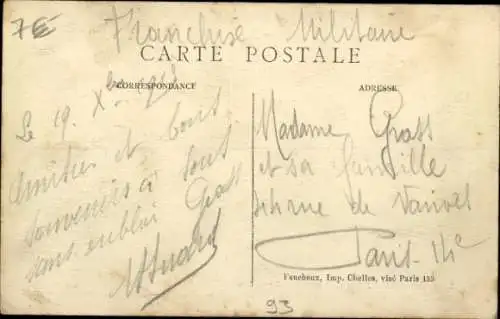 7€
Franchise Militaire
CARTE POSTALE
CORRESPONDANCE
ADRESSE
Le 19. Xbre
Amitiés et bons
souvenirs à tous
sans oublier Grass
Madame Grass
et sa famille
rue de Vanves
Paris-14e
Faucheux, Imp. Chelles, visé Paris 133
93